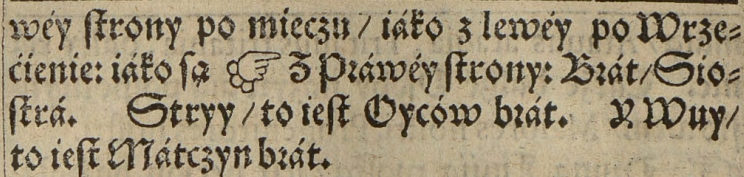 wéy ſtrony po mieczu / iáko z lewéy po Wrze⸗
ćienie: iáko ſą ☞ Z Práwéy ſtrony: Brát/Sio⸗
ſtrá. Stryy / to ieſt Oyców brát. Y Wuy/
to ieſt Mátczyn brát.